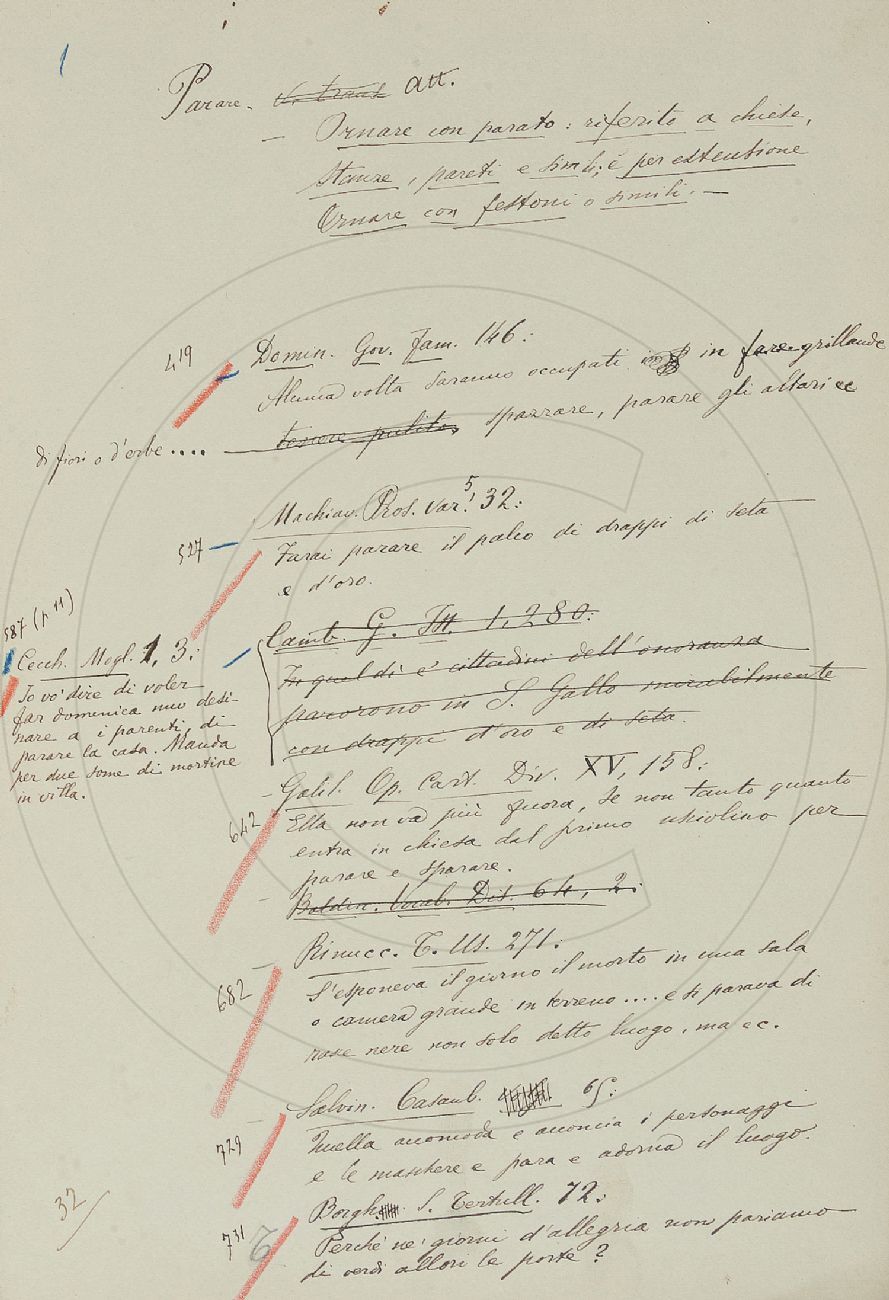 1
Parare. V. trans. Att.
– Ornare con parato: riferito a chiese,
stanze, pareti e simili; e per estensione
Ornare con festoni o simili. –
419
Domin. Gov. Fam. 146:
Alcuna volta saranno occupati in fare grillande
di fiori o d'erbe .... tenere pulito, spazzare, parare gli altari ec
Machiav. Pros. var. 5 32:
527 – Farai parare il palco di drappi di seta
e d'oro.
587 (p 11)
Cecch. Mogl. 1, 3:
Io vo' dire di voler
far domenica uno desi-
nare a i parenti, di
parare la casa. Manda
per due some di mortine
in villa.
Camb. G. Ist. 1, 280:
In quel dì e' cittadini dell'onoranza
pararono in S. Gallo mirabilmente
con drappi d'oro e di seta.
– Galil. Op. Cart. Div. XV, 158:
642
Ella non va più fuora, se non tanto quanto
entra in chiesa dal primo usciolino per
parare e sparare.
Baldin. Vocab. Dis. 64, 2:
– Rinucc. C. Us. 271:
682
S'esponeva il giorno il morto in una sala
o camera grande in terreno .... e si parava di
rase nere non solo detto luogo, ma ec.
– Salvin. Casaub. 65:
729
Quella accomoda e acconcia i personaggi
e le maschere e para e adorna il luogo.
32
Borgh. S. Tertull. 72:
731
Perché ne' giorni d'allegria non pariamo
di verdi allori le porte?